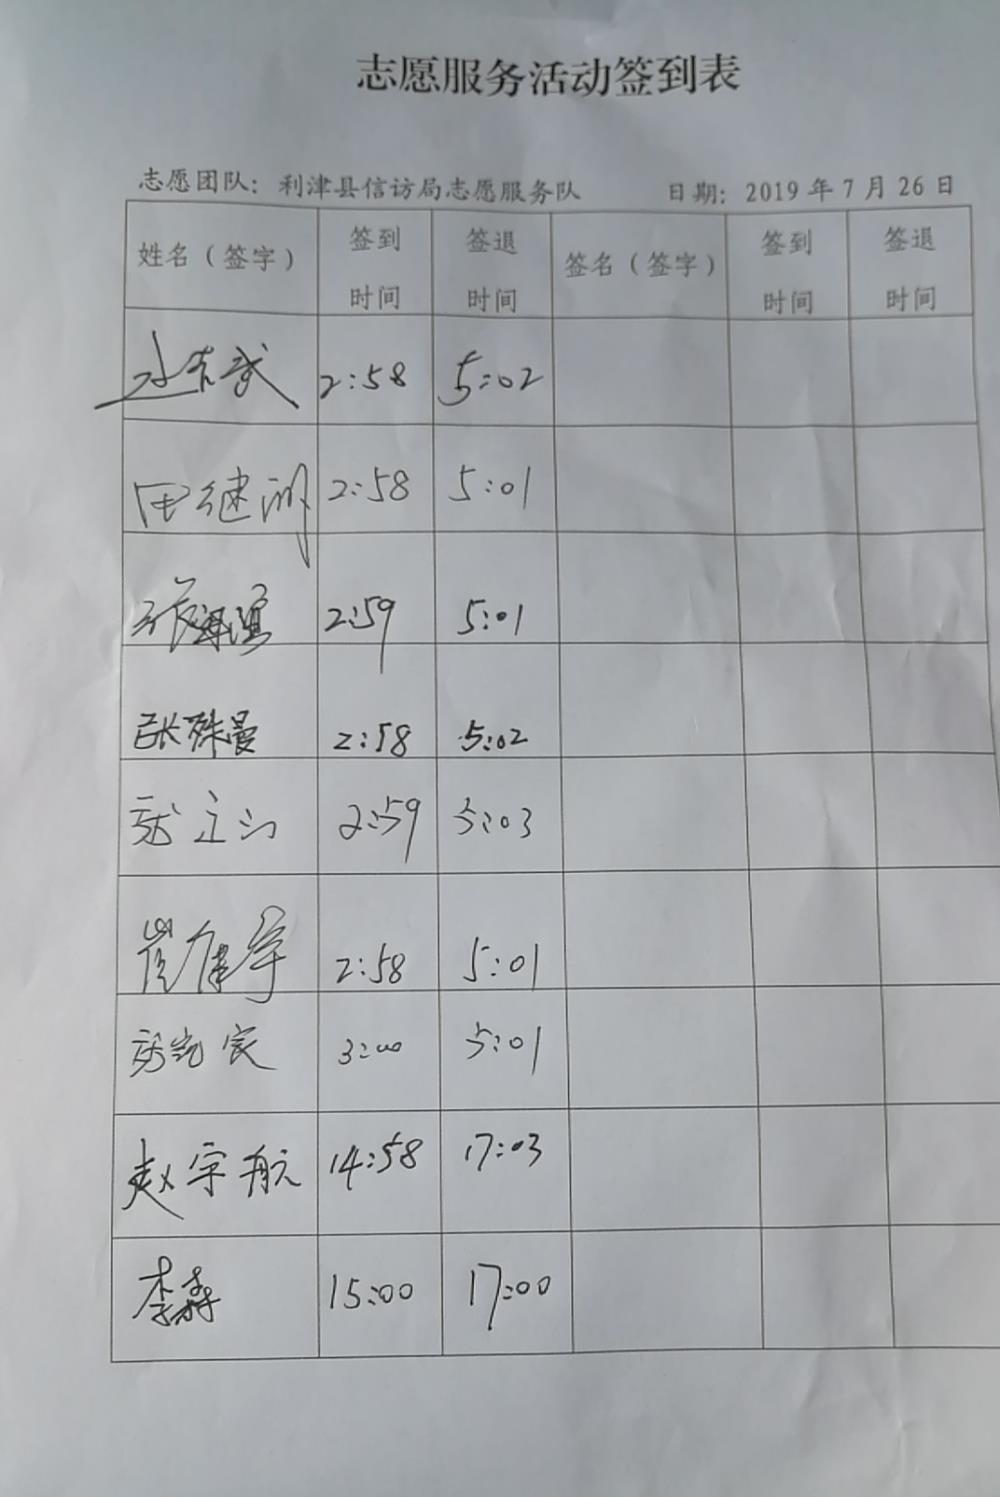 志愿服务活动签到表
志愿团队：利津县信访局志愿服务队 日期：2019年7月26日
姓名（签字） 签到时间 签退时间 签名（签字） 签到时间 签退时间
2:58 5:02
田继 2:58 5:01
张 2:59 5:01
张殊曼 2:58 5:02
2:59 5:03
崔 2:58 5:01
3:00 5:01
赵宇航 14:58 17:03
李森 15:00 17:00